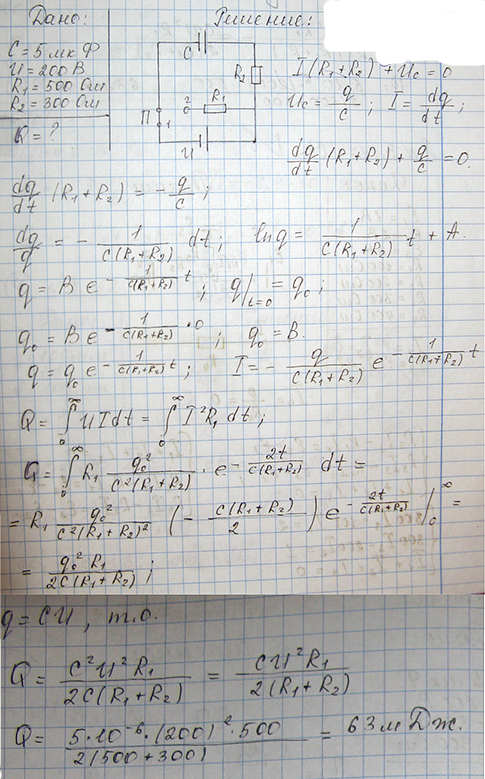 Дано:
C = 5 мк Ф
U = 200 В
R₁ = 500 Ом
R₂ = 300 Ом
Q = ?
Решение:
C
R₂
R₁
2
П
1
U
I(R₁+R₂) + Uc = 0
Uc = q/c ; I = dq/dt ;
dq/dt (R₁+R₂) + q/c = 0.
dq/dt (R₁+R₂) = - q/c ;
dq/q = - 1/C(R₁+R₂) dt ; ln q = 1/C(R₁+R₂) t + A.
q = B e^(- 1/C(R₁+R₂) t) ; q|t=0 = q₀ ;
q₀ = B e^(- 1/C(R₁+R₂) · 0) ; q₀ = B.
q = q₀ e^(- 1/C(R₁+R₂) t) ; I = - q/C(R₁+R₂) e^(- 1/C(R₁+R₂) t)
Q = ∫₀^∞ UI dt = ∫₀^∞ I² R₁ dt ;
Q = ∫₀^∞ R₁ q₀²/C²(R₁+R₂) · e^(- 2t/C(R₁+R₂)) dt =
= R₁ q₀²/C²(R₁+R₂)² (- C(R₁+R₂)/2) e^(- 2t/C(R₁+R₂)) |₀^∞ =
= q₀² R₁/2C(R₁+R₂) ;
q = CU, т.о.
Q = C²U²R₁/2C(R₁+R₂) = CU²R₁/2(R₁+R₂)
Q = 5·10⁻⁶·(200)²·500/2(500+300) = 63 м Дж.